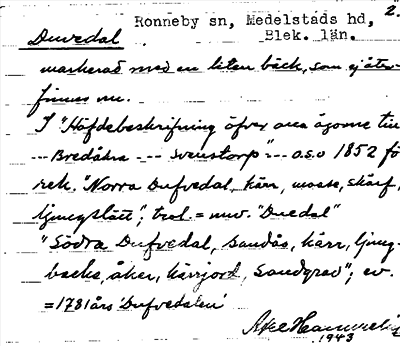 2.
Ronneby sn, Medelstads hd,
Blek. län.
Duvedal
markerad med en liten bäck, som ej åter-
finnes nu.
I "Häfdebeskrifning öfver ägorne
--- Bredåkra --- Svenstorp" --- o.s.v 1852 fö
rek. "Norra Dufvedal, kärr, mosse, skarf,
ljungslätt"; trol. = nuv. "Duedal"
"Södra Dufvedal, sandås, kärr, ljung-
backe, åker, kärrjord, sandgrad"; ev.
= 1781 års 'Dufvedalen'
Axel
1943